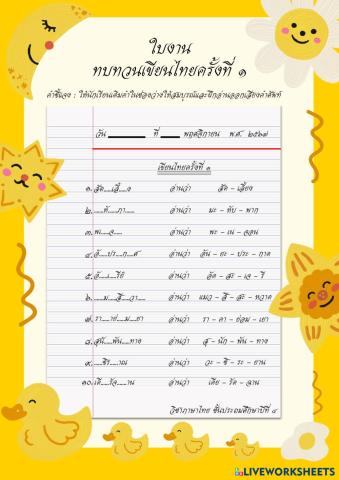 ใบงาน
ทบทวนเขียนไทยครั้งที่ ๑
คำชี้แจง : ให้นักเรียนเติมคำในช่องว่างให้สมบูรณ์และฝึกอ่านออกเสียงคำศัพท์
วัน ที่ พฤศจิกายน พ.ศ. ๒๕๖๗
เขียนไทยครั้งที่ ๑
๑.สัด.....เลี้.....ง อ่านว่า สัด - เลี้ยง
๒......ทั.....ภา..... อ่านว่า มะ - ทับ - พาก
๓.พเ.....จ..... อ่านว่า พะ - เน - จอน
๔.อั.....ปร.....ก.....ศ์ อ่านว่า อัน - ยะ - ประ - กาด
๕.อั.....เ.....รีย์ อ่านว่า อัด - สะ - เจ - รี
๖......ม.....สี.....วา..... อ่านว่า แมว - สี - สะ - หวาด
๗.รา.....ย่.....ม.....ยา อ่านว่า รา - คา - ย่อม - เยา
๘.สุนั.....พัน.....ทาง อ่านว่า สุ - นัก - พัน - ทาง
๙......ชีร.....าณ อ่านว่า วะ - ชิ - ระ - ยาน
๑๐.เดี.....รัจ.....าน อ่านว่า เดีย - รัด - ฉาน
วิชาภาษาไทย ชั้นประถมศึกษาปีที่ ๔
LIVEWORKSHEETS